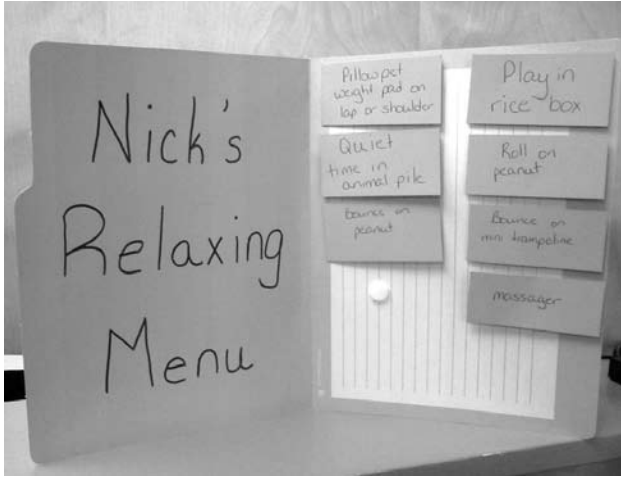 Nick's
Relaxing
Menu
Pillowpet
weight pad on
lap or shoulder
Quiet
time in
animal pile
bounce on
peanut
Play in
rice box
Roll on
peanut
Bounce on
mini trampoline
massager